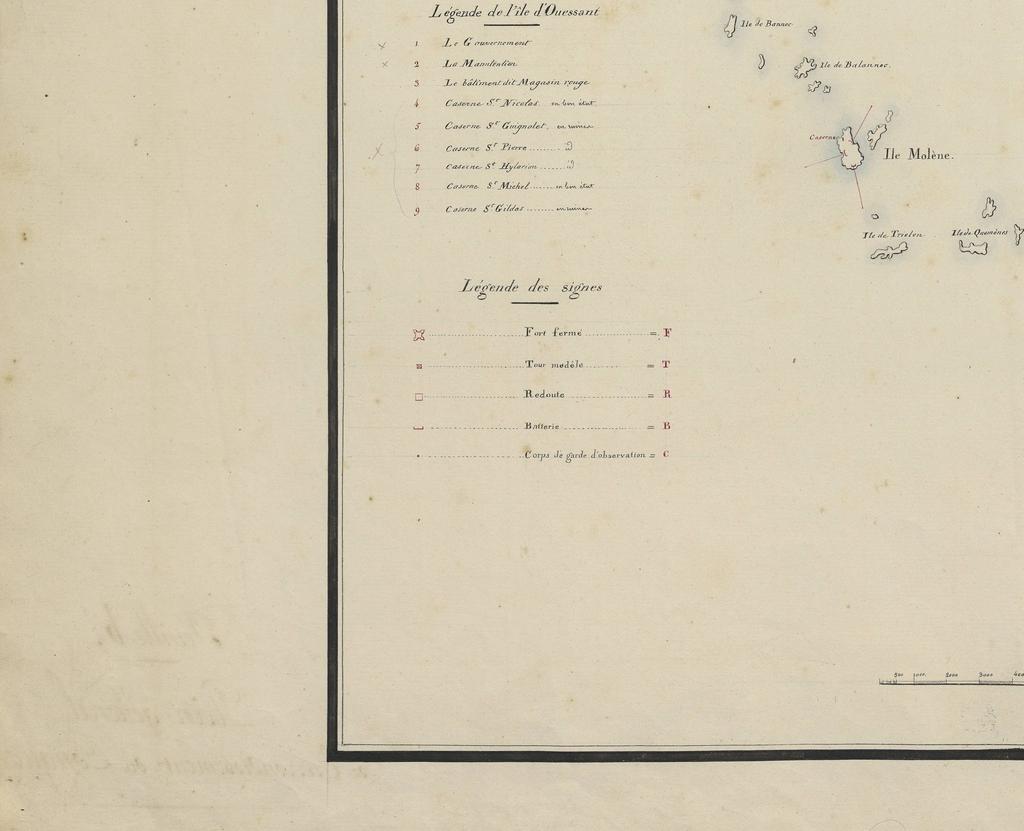 Légende de l'île d'Ouessant
1 Le Gouvernement
2 La Manutention
3 Le bâtiment dit Magasin rouge
4 Caserne St Nicolas. en bon état
5 Caserne St Guignolet, en ruines
6 Caserne St Pierre
7 Caserne St Hylarion
8 Caserne St Michel en bon état
9 Caserne St Gildas en ruines
Légende des signes
Fort fermé = F
Tour modèle = T
Redoute = R
Batterie = B
Corps de garde d'observation = C
Ile de Bannec
Ile de Balannec.
Caserne
Ile Molène.
Ile de Trielen
Ile de Quemènès
500 1000 2000 3000